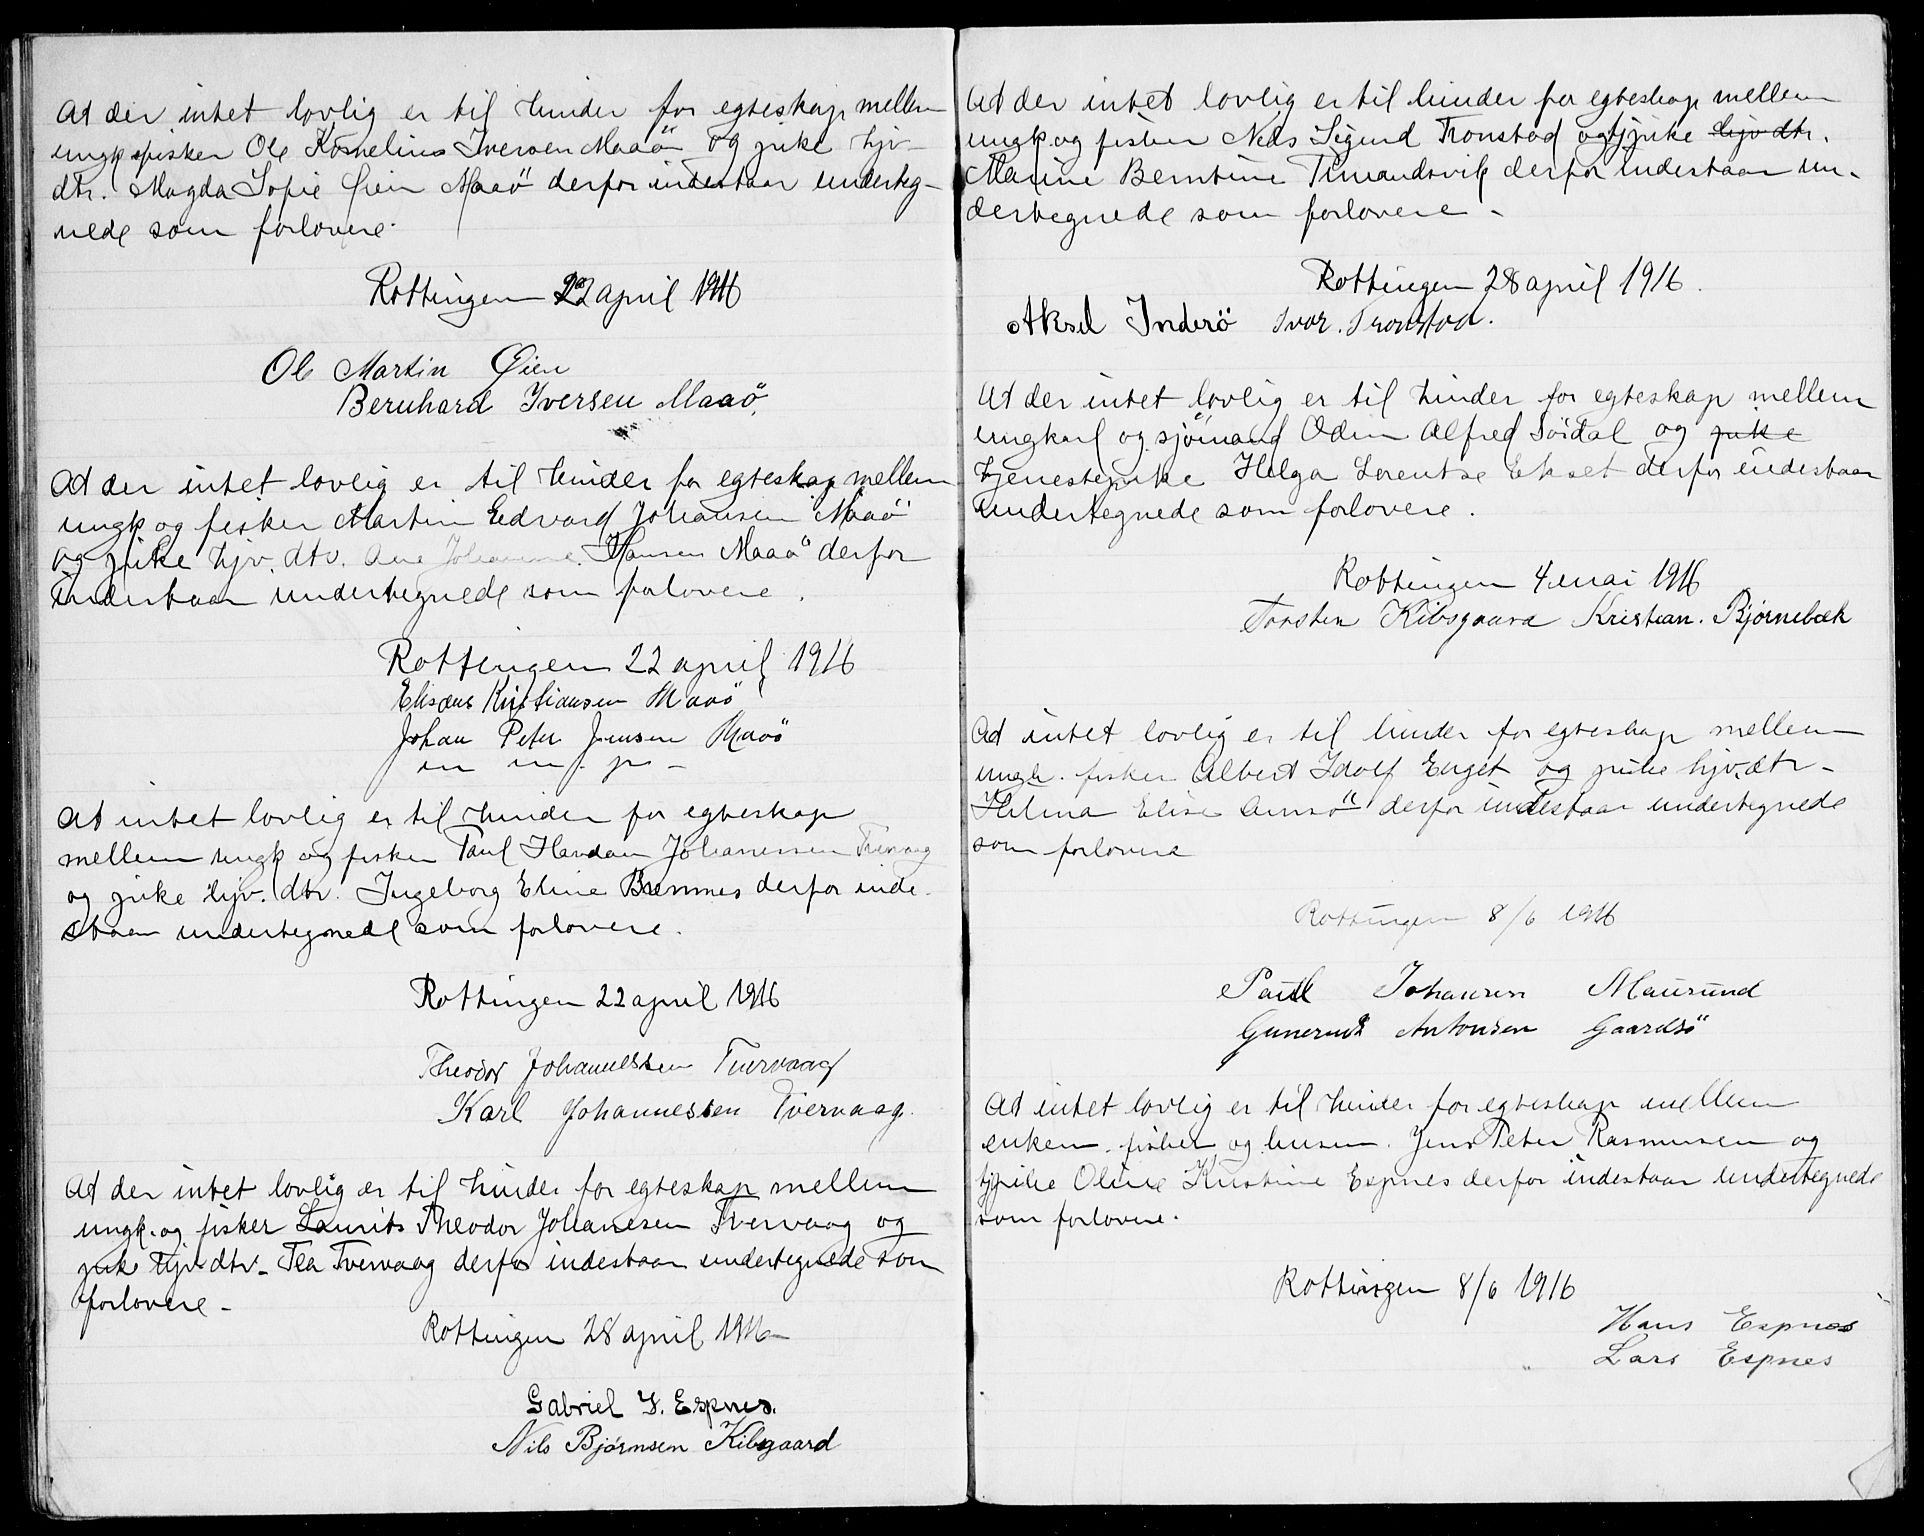 At der intet lovlig er til hinder for egteskap mellem
ungk og fisker Ole Kornelius Iversen Maaö og pike hjv.
dtr. Magda Sofie Øien Maaö derfor indestaar underteg-
nede som forlovere.
Rottingen 22 april 1916
Ole Martin Øien
Bernhard Iversen Maaö,
At der intet lovlig er til hinder for egteskap mellem
ungk og fisker Martin Edvard Johansen Maaö
og pike hjv. dtr. Ane Johanne Hansen Maaö derfor
indestaar undertegnede som forlovere.
Rottingen 22 april 1916
Elisæus Kristiansen Maaö
Johan Peter Jensen Maaö
m p
At intet lovlig er til hinder for egteskap
mellem ungk og fisker Paul Johanessen Tvervaag
og pike hjv. dtr. Ingeborg Eline Bremnes derfor inde-
staar undertegnede som forlovere.
Rottingen 22 april 1916
Theodor Johannessen Tvervaag
Karl Johannessen Tvervaag.
At der intet lovlig er til hinder for egteskap mellem
ungk. og fisker Laurits Theodor Johanesen Tvervaag og
pike hjv dtr. Tea Tvervaag derfor indestaar undertegnede som
forlovere -
Rottingen 28 april 1916
Gabriel J. Espnes.
Nils Bjørnsen Kibsgaard
At der intet lovlig er til hinder for egteskap mellem
ungk. og fisker Nels Sigurd Tronstad og tj pike hjv dtr.
Marine Berntine derfor indestaar un-
dertegnede som forlovere -
Rottingen 28 april 1916.
Aksel Inderö Ivar. Tronstad.
At der intet lovlig er til hinder for egteskap mellem
ungkarl og sjömand Odin Alfred Söidal og pike
tjenestepike Helga Lorentse Ekset derfor indestaar
undertegnede som forlovere.
Rottingen 4 mai 1916
Torsten Kibsgaard Kristian. Bjørnebæk
At intet lovlig er til hinder for egteskap mellem
ungk. fisker Albert Idolf Enget og pike hjv. dtr.
Helina Elise derfor indestaar undertegnede
som forlovere
Rottingen 8/6 1916
Paul Johansen Maursund
Gunerius Antonsen Gaardsö
At intet lovlig er til hinder for egteskap mellem
enkem. fisker og husm. Jens Peter Rasmussen og
tj pike Oline Kristine Espnes derfor indestaar undertegnede
som forlovere.
Rottingen 8/6 1916
Hans Espnes
Lars Espnes